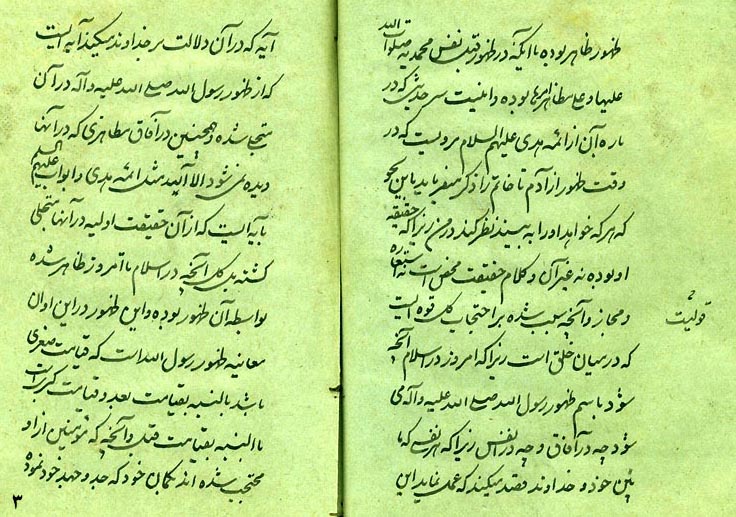 ظهور ظاهر بوده تا آنکه در ظهور قبل نفس محمد به صلوات الله
علیها و علی مظاهر امرها بوده و اینست سر حدیثی که در
باره آن از ائمه هدی علیهم السلام مرویست که در
وقت ظهور از آدم تا خاتم را ذکر میفرماید باین نحو
که هر که خواهد او را به بیند نظر کند در من زیرا که حقیقة
او بوده نه غیر آن و کلام حقیقت محض است نه استعاره
و مجاز و آنچه سبب شده بر احتجاب کل قوه ایست
که در میان خلق است زیرا که امروز در اسلام آنچه
شود باسم ظهور رسول الله صلی الله علیه و آله می
شود چه در آفاق و چه در نفس زیرا که هر نفسی که ما
بین خود و خداوند قصد میکند که عمل نماید این
قولیت
آیه که در آن دلالت بر خداوند میکند آیه ایست
که از ظهور رسول الله صلی الله علیه و آله در آن
متجلی شده و همچنین در آفاق مظاهری که در آنها
دیده نمی شود الا الله مثل ائمه هدی و ابواب علیهم السلم
بآیه ایست که از آن حقیقت اولیه در آنها متجلی
گشته بل کل آنچه در اسلام تا امروز ظاهر شده
بواسطه آن ظهور بوده و این ظهور در این اوان
معاینه ظهور رسول الله است که قیامت صغری
باشد بالنسبه بقیامت بعد و قیامت کبری است
بالنسبه بقیامت قبل و آنچه که مؤمنین از او
محتجب شده اند بگمان خود که جد و جهد خود نموده
۳